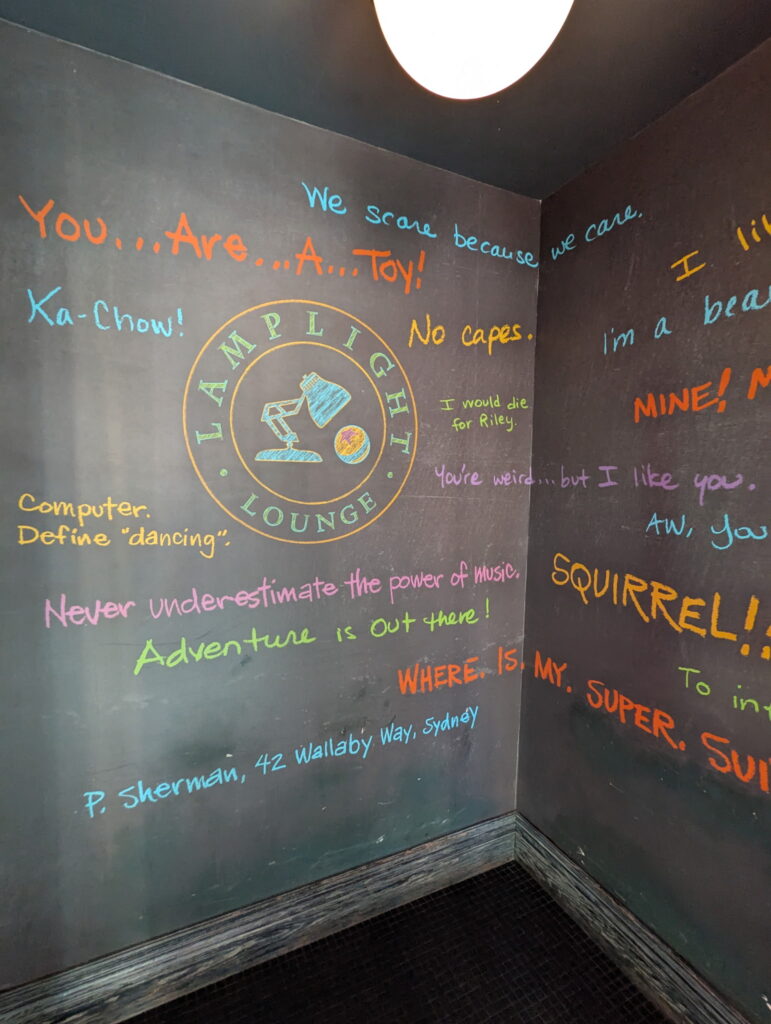 We scare because we care.
You...Are...A...Toy!
Ka-Chow!
LAMPLIGHT
LOUNGE
No capes.
I would die
for Riley.
You're weird...but I like you.
Computer.
Define "dancing".
Never underestimate the power of music.
Adventure is out there!
WHERE. IS. MY. SUPER.
P. Sherman, 42 Wallaby Way, Sydney
I
I'm a
MINE!
AW,
SQUIRREL!!
To